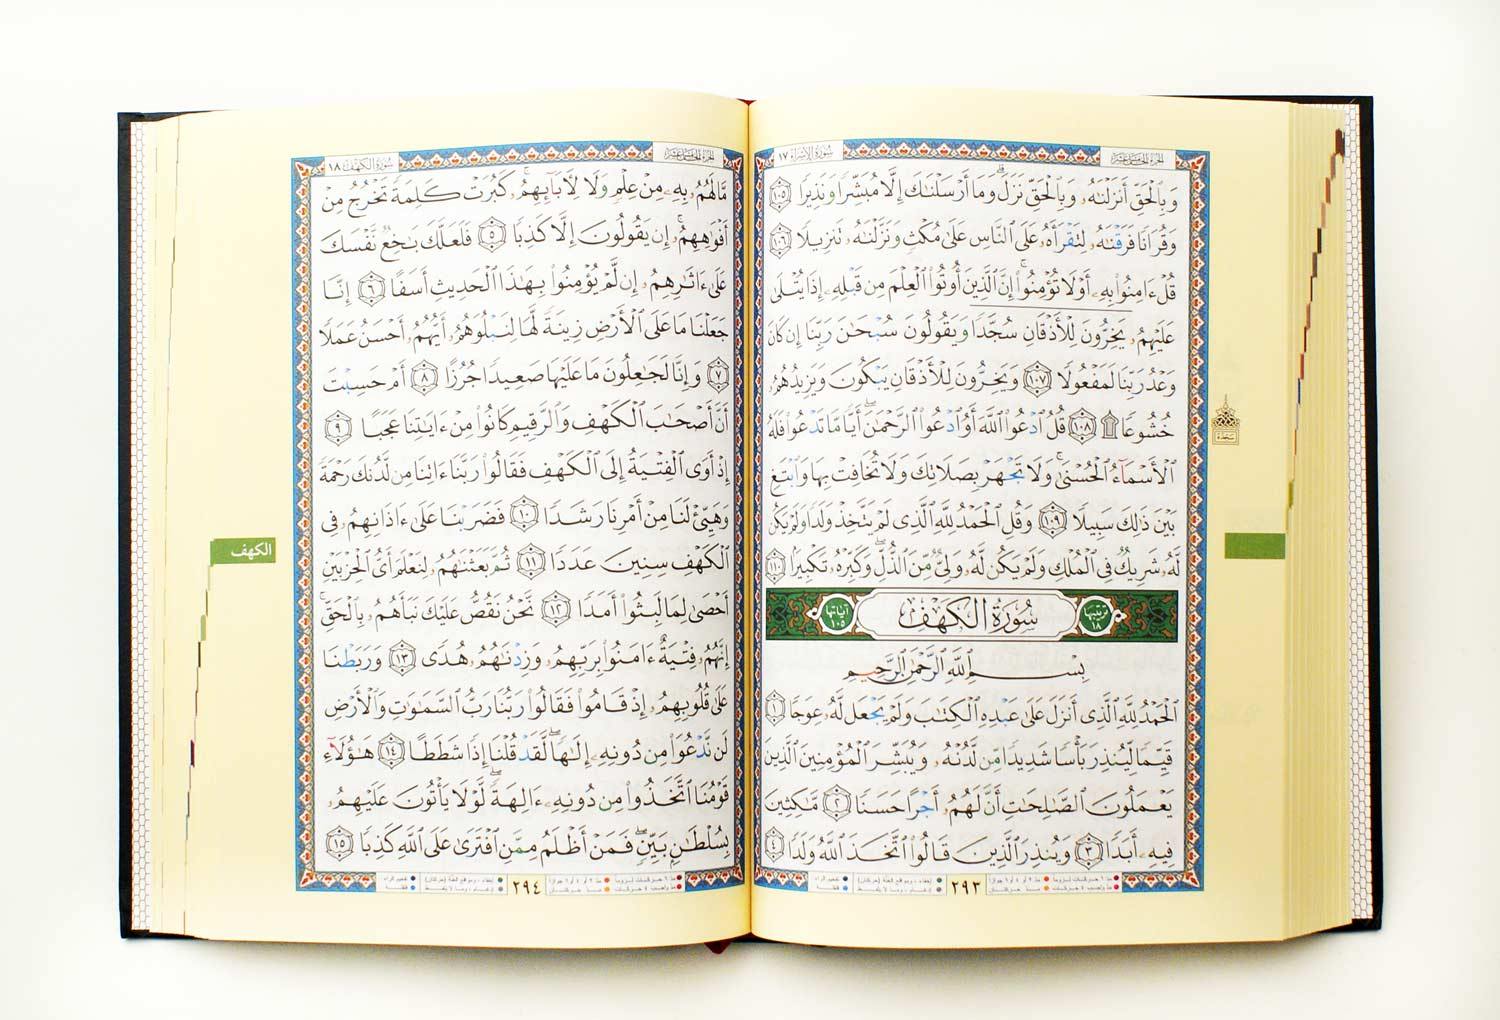 الجزء الخامس عشر
سورة الإسراء ١٧
وَبِالْحَقِّ أَنزَلْنَٰهُۥ وَبِالْحَقِّ نَزَلَ وَمَا أَرْسَلْنَٰكَ إِلَّا مُبَشِّرًا وَنَذِيرًا ١٠٥
وَقُرَانًا فَرَقْنَٰهُۥ لِنَقْرَأَهُۥ عَلَى النَّاسِ عَلَىٰ مُكْثٍ وَنَزَّلْنَٰهُۥ تَنزِيلًا ١٠٦
قُلْ ءَامِنُوا بِهِۦ أَوْ لَا تُؤْمِنُوا إِنَّ الَّذِينَ أُوتُوا الْعِلْمَ مِن قَبْلِهِۦ إِذَا يُتْلَىٰ
عَلَيْهِمُۥ يَخِرُّونَ لِلْأَذْقَانِ سُجَّدًا وَيَقُولُونَ سُبْحَٰنَ رَبِّنَا إِن كَانَ
وَعْدُ رَبِّنَا لَمَفْعُولًا ١٠٧ وَيَخِرُّونَ لِلْأَذْقَانِ يَبْكُونَ وَيَزِيدُهُمُۥ
خُشُوعًا ۩ ١٠٨ قُلُ ادْعُوا اللَّهَ أَوُ ادْعُوا الرَّحْمَٰنَ أَيًّا مَّا تَدْعُوا فَلَهُ
الْأَسْمَآءُ الْحُسْنَىٰ وَلَا تَجْهَرْ بِصَلَاتِكَ وَلَا تُخَافِتْ بِهَا وَابْتَغِ
بَيْنَ ذَٰلِكَ سَبِيلًا ١٠٩ وَقُلِ الْحَمْدُ لِلَّهِ الَّذِي لَمْ يَتَّخِذْ وَلَدًا وَلَمْ يَكُن
لَّهُۥ شَرِيكٌ فِي الْمُلْكِ وَلَمْ يَكُن لَّهُۥ وَلِيٌّ مِّنَ الذُّلِّ وَكَبِّرْهُۥ تَكْبِيرًا ١١٠
ترتيبها ١٨
سُورَةُ الْكَهْفِ
آياتها ١٠٥
بِسْمِ اللَّهِ الرَّحْمَٰنِ الرَّحِيمِ
الْحَمْدُ لِلَّهِ الَّذِي أَنزَلَ عَلَىٰ عَبْدِهِ الْكِتَٰبَ وَلَمْ يَجْعَل لَّهُۥ عِوَجًا ١
قَيِّمًا لِّيُنذِرَ بَأْسًا شَدِيدًا مِّن لَّدُنْهُۥ وَيُبَشِّرَ الْمُؤْمِنِينَ الَّذِينَ
يَعْمَلُونَ الصَّٰلِحَٰتِ أَنَّ لَهُمُۥ أَجْرًا حَسَنًا ٢ مَّٰكِثِينَ
فِيهِۦ أَبَدًا ٣ وَيُنذِرَ الَّذِينَ قَالُوا اتَّخَذَ اللَّهُ وَلَدًا ٤
٢٩٣
سجدة
سُورَةُ الْكَهْفِ ١٨
مَّا لَهُمُۥ بِهِۦ مِنْ عِلْمٍ وَلَا لِأَبَآئِهِمُۥ كَبُرَتْ كَلِمَةً تَخْرُجُ مِنْ
أَفْوَٰهِهِمُۥ إِن يَقُولُونَ إِلَّا كَذِبًا ٥ فَلَعَلَّكَ بَٰخِعٌ نَّفْسَكَ
عَلَىٰ ءَاثَٰرِهِمُۥ إِن لَّمْ يُؤْمِنُوا بِهَٰذَا الْحَدِيثِ أَسَفًا ٦ إِنَّا
جَعَلْنَا مَا عَلَى الْأَرْضِ زِينَةً لَّهَا لِنَبْلُوَهُمُۥ أَيُّهُمُۥ أَحْسَنُ عَمَلًا
٧ وَإِنَّا لَجَٰعِلُونَ مَا عَلَيْهَا صَعِيدًا جُرُزًا ٨ أَمْ حَسِبْتَ
أَنَّ أَصْحَٰبَ الْكَهْفِ وَالرَّقِيمِ كَانُوا مِنْ ءَايَٰتِنَا عَجَبًا ٩
إِذْ أَوَى الْفِتْيَةُ إِلَى الْكَهْفِ فَقَالُوا رَبَّنَا ءَاتِنَا مِن لَّدُنكَ رَحْمَةً
وَهَيِّئْ لَنَا مِنْ أَمْرِنَا رَشَدًا ١٠ فَضَرَبْنَا عَلَىٰ ءَاذَانِهِمُۥ فِي
الْكَهْفِ سِنِينَ عَدَدًا ١١ ثُمَّ بَعَثْنَٰهُمُۥ لِنَعْلَمَ أَيُّ الْحِزْبَيْنِ
أَحْصَىٰ لِمَا لَبِثُوا أَمَدًا ١٢ نَحْنُ نَقُصُّ عَلَيْكَ نَبَأَهُمُۥ بِالْحَقِّ
إِنَّهُمُۥ فِتْيَةٌ ءَامَنُوا بِرَبِّهِمُۥ وَزِدْنَٰهُمُۥ هُدًى ١٣ وَرَبَطْنَا
عَلَىٰ قُلُوبِهِمُۥ إِذْ قَامُوا فَقَالُوا رَبُّنَا رَبُّ السَّمَٰوَٰتِ وَالْأَرْضِ
لَن نَّدْعُوَا مِن دُونِهِۦ إِلَٰهًا لَّقَدْ قُلْنَا إِذًا شَطَطًا ١٤ هَٰؤُلَآءِ
قَوْمُنَا اتَّخَذُوا مِن دُونِهِۦ ءَالِهَةً لَّوْلَا يَأْتُونَ عَلَيْهِمُۥ
بِسُلْطَٰنٍ بَيِّنٍ فَمَنْ أَظْلَمُ مِمَّنِ افْتَرَىٰ عَلَى اللَّهِ كَذِبًا ١٥
٢٩٤
الكهف